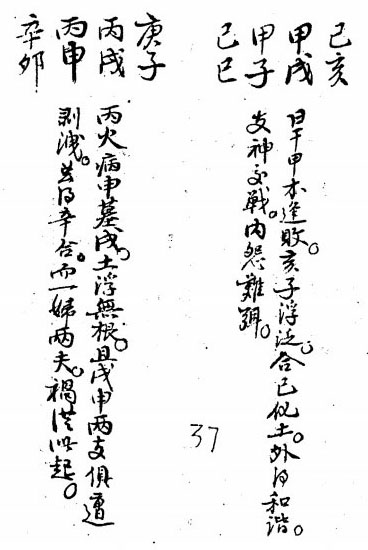 己亥
甲戌
甲子
己巳
日干甲木逢敗。亥子浮泛。合己化土。外得和諧。
支神交戰。內怨難弭。
庚子
丙戌
丙申
辛卯
丙火病申墓戌。土浮無根。且戌申兩支俱遭
剥洩。得辛合。而一婦兩夫。禍從此起。
37